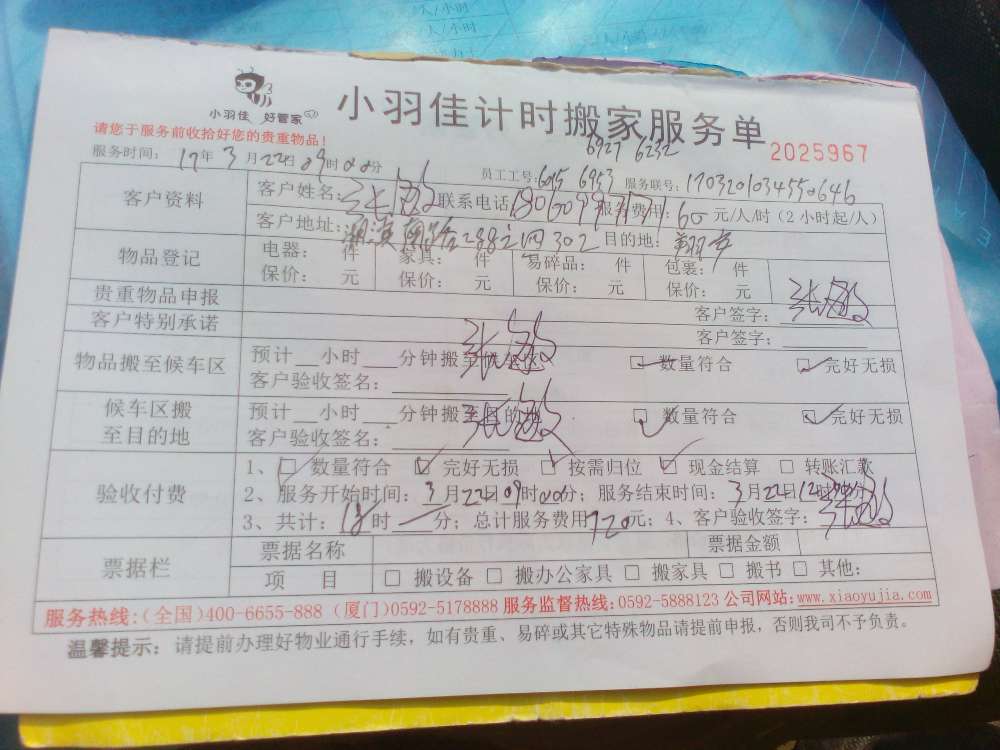 小羽佳 好管家
小羽佳计时搬家服务单
请您于服务前收拾好您的贵重物品!
6927 6232
2025967
服务时间: 17年3月22日09时00分 员工工号: 6953 服务联号: 1703201034550646
客户资料
客户姓名: 联系电话 服务费用: 60元/人/时 (2小时起/人)
客户地址: 302 目的地: 翔安
物品登记
电器: 件 家具: 件 易碎品: 件 包裹: 件
保价: 元 保价: 元 保价: 元 保价: 元
贵重物品申报 客户签字:
客户特别承诺 客户签字:
物品搬至候车区
预计 小时 分钟搬至候车区 数量符合 完好无损
客户验收签名:
候车区搬至目的地
预计 小时 分钟搬至目的地 数量符合 完好无损
客户验收签名:
验收付费
1、数量符合 完好无损 按需归位 现金结算 转账汇款
2、服务开始时间: 3月22日09时00分; 服务结束时间: 3月22日12时00分
3、共计: 时 分; 总计服务费用720元; 4、客户验收签字:
票据栏
票据名称 票据金额
项 目 搬设备 搬办公家具 搬家具 搬书 其他:
服务热线:(全国)400-6655-888 (厦门)0592-5178888 服务监督热线:0592-5888123 公司网站:www.xiaoyujia.com
温馨提示: 请提前办理好物业通行手续, 如有贵重、易碎或其它特殊物品请提前申报, 否则我司不予负责。